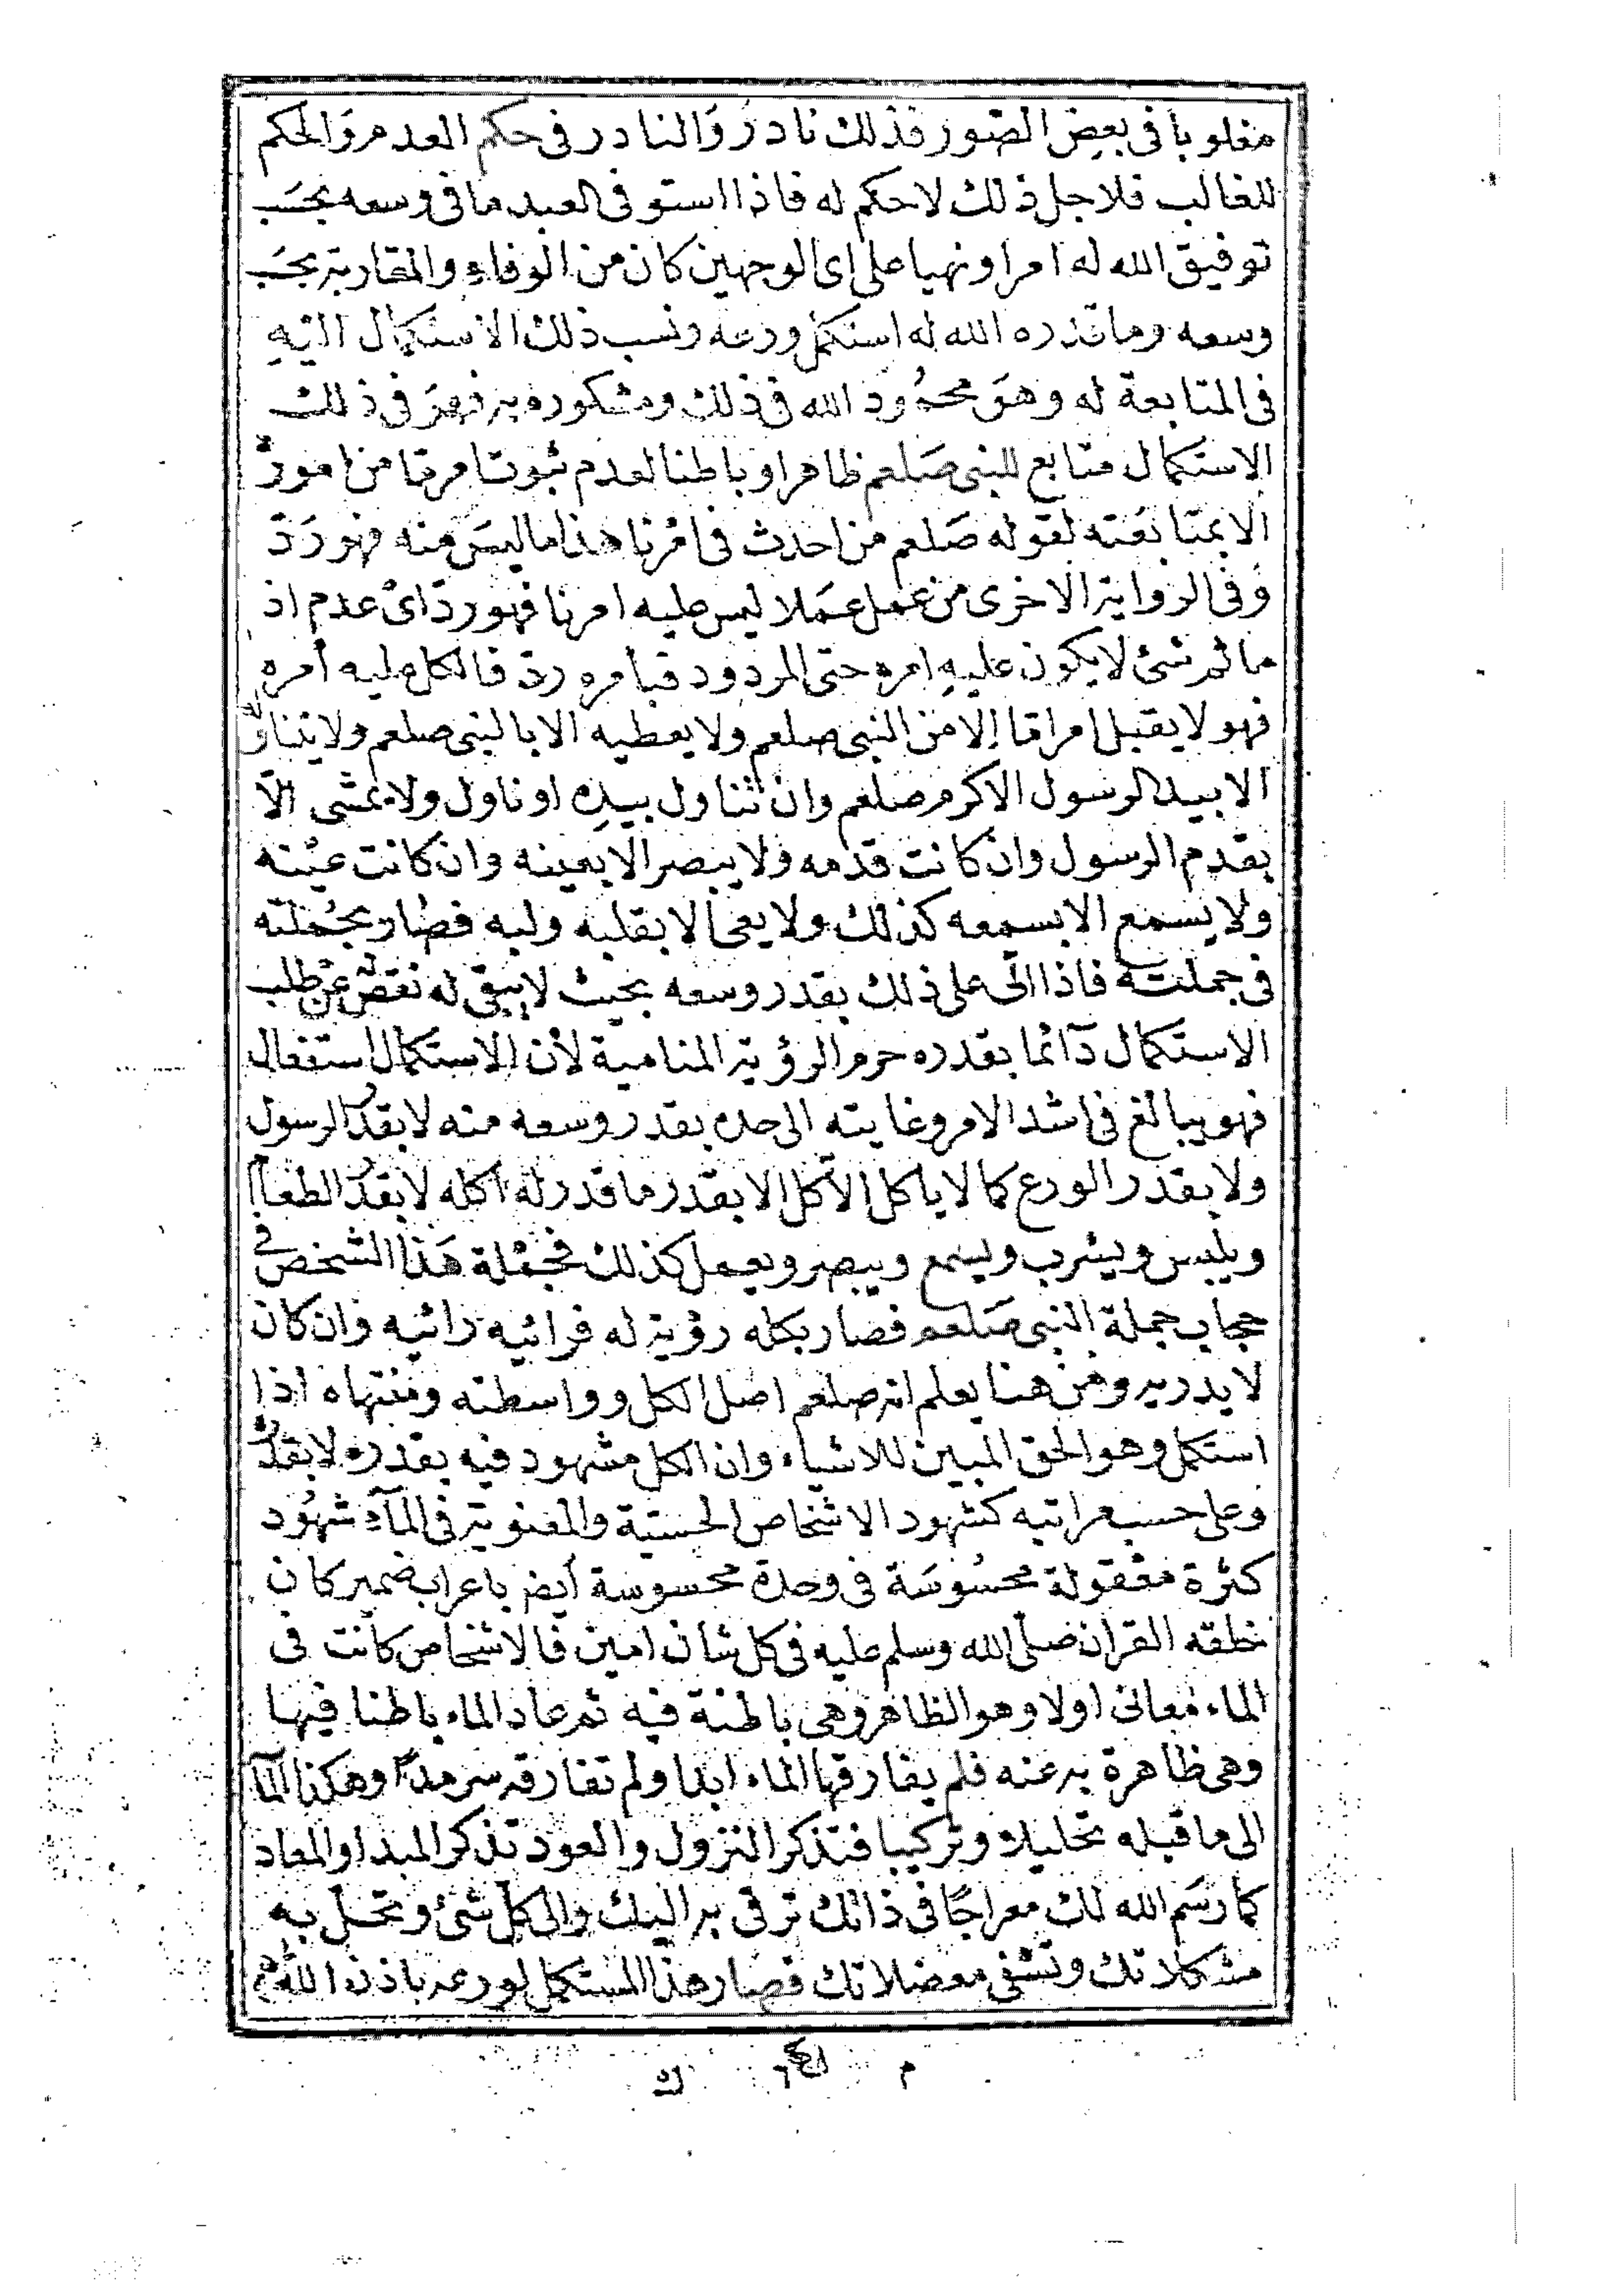 مغلوبا فى بعض الصور فذلك نادر وَالنادر فى حكم العدم وَالحكم
للغالب فلاجل ذلك لاحكم له فاذا استوفى العبد ما فى وسعه بحسَب
توفيق الله له امرا ونهيا على اى الوجهين كان من الوفاء والمقاربة بحسَب
وسعه وما قدره الله له استكمل ورعه ونسب ذلك الاستكمال اليهِ
فى المتابعة له وهوَ محمُود الله فى ذلك ومشكوره به فهوَ فى ذلك
الاستكمال متابع للنبى صَلعم ظاهرا وباطنا لعدم ثبوت امر ما من امورهٌ
الا بمتابعَته لقوله صَلعم من احدث فى امْرنا هذا ما ليسَ منه فهو رَدّ
وَفى الرواية الاخرى من عمل عمَلا ليس عليه امرنا فهو ردّ اىْ عدم اذ
ما ثم شئ لا يكون عليهِ امره حتى المردود فبامره ردّ فالكل عليه أمره
فهو لا يقبل امرا مّا الا من النبى صلعم ولا يعطيه الا بالنبى صلعم ولا يتناول
الا بيد الرسول الاكرم صلعم وان تناول بيدِه او ناول ولا يمشى الاّ
بقدم الرسول وان كانت قدمه ولا يبصر الا بعينه وان كانت عيْنه
ولا يسمع الا بسمعه كذلك ولا يعى الا بقلبه ولبه فصار بجُملته
فى جملته فاذا اتى على ذلك بقدر وسعه بحيث لا يبقى له نقص عن طلب
الاستكمال دآئما بقدره حرم الرؤية المنامية لأن الاستكمال استفعال
فهو يبالغ فى اشد الامر وغايته الى حده بقدر وسعه منه لا بقدر الرسول
ولا بقدر الورع كما لا ياكل الآكل الا بقدر ما قدر له اكله لا بقدر الطعام
ويلبس ويشرب ويسمع ويبصر ويعمل كذلك فجمْلة هَذا الشخص فى
حجاب جملة النبى صَلعم فصار بكله رؤية له فرائيه رائيه وان كان
لا يدريه ومن هنا يعلم انه صلعم اصل الكل وواسطته ومنتهاه اذا
استكمل وهو الحق المبين للاشياء وان الكل مشهود فيه بقدره لا بقدرهٌ
وعلى حسب مراتبه كشهود الاشخاص الحسية والمعنوية فى المآء شهُود
كثرة معْقولة محسُوسَة فى وحدة محسوسة أيض باعراب ضمير كان
خلقه القران صلّى الله وسلم عليه فى كل شان امين فالاشخاص كانت فى
الماء معانى اولا وهو الظاهر وهى باطنة فيه ثم عاد الماء باطنا فيها
وهى ظاهرة به عنه فلم يفارقها الماء ابدا ولم تفارقه سرمدًا وهكذا الماء
الى ما قبله تحليلا وتركيبا فتذكر النزول والعود تذكر المبدا والمعاد
كما رسَم الله لك معراجًا فى ذاتك ترقى به اليك والى كل شئ وتحل به
مشكلاتك وتشفى معضلاتك فصار هذا المستكمل لورعه باذن الله